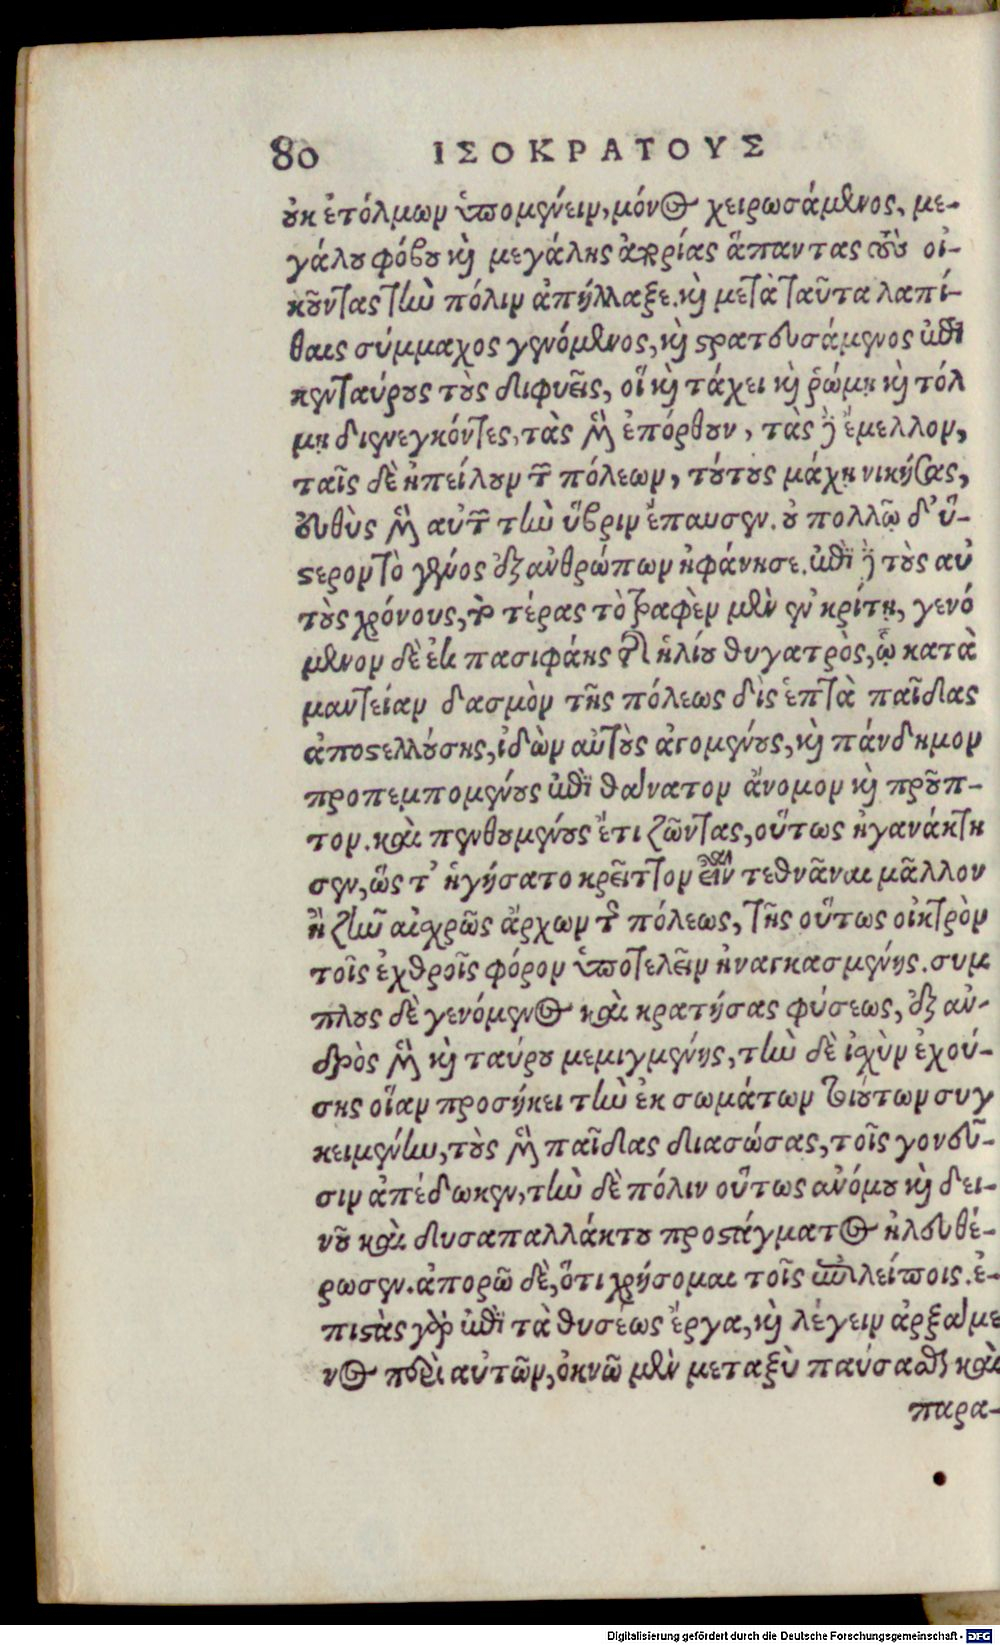 80 ΙΣΟΚΡΑΤΟΥΣ
οὐκ ἐτόλμων ὑπομένειν, μόνος χειρωσάμενος, με-
γάλου φόβου καὶ μεγάλης ἀπορίας ἅπαντας τοὺς οἰ-
κοῦντας τὴν πόλιν ἀπήλλαξε. καὶ μετὰ ταῦτα λαπί-
θαις σύμμαχος γενόμενος, καὶ στρατευσάμενος ἐπὶ
κενταύρους τοὺς διφυεῖς, οἳ καὶ τάχει καὶ ῥώμῃ καὶ τόλ
μῃ διενεγκόντες, τὰς μὲν ἐπόρθουν, τὰς δὲ ἔμελλον,
ταῖς δὲ ἠπείλουν τῶν πόλεων, τούτους μάχῃ νικήσας,
εὐθὺς μὲν αὐτῶν τὴν ὕβριν ἔπαυσεν. οὐ πολλῷ δ' ὕ-
στερον τὸ γένος ἐξ ἀνθρώπων ἠφάνησε. ἐπὶ δὲ τοὺς αὐ
τοὺς χρόνους, τὸ τέρας τὸ τραφὲν μὲν ἐν κρίτῃ, γενό
μενον δὲ ἐκ πασιφάης τῆς ἡλίου θυγατρὸς, ᾧ κατὰ
μαντείαν δασμὸν τῆς πόλεως δὶς ἑπτὰ παῖδας
ἀποστελλούσης, ἰδὼν αὐτοὺς ἀγομένους, καὶ πάνδημον
προπεμπομένους ἐπὶ θάνατον ἄνομον καὶ προῦπ-
τον. καὶ πενθουμένους ἔτι ζῶντας, οὕτως ἠγανάκτη
σεν, ὥς τ' ἡγήσατο κρεῖττον εἶναι τεθνᾶναι μᾶλλον
ἢ ζῆν αἰσχρῶς ἄρχων τῆς πόλεως, τῆς οὕτως οἰκτρὸν
τοῖς ἐχθροῖς φόρον ὑποτελεῖν ἠναγκασμένης. συμ
πλους δὲ γενόμενος καὶ κρατήσας φύσεως, ἐξ ἀν-
δρὸς μὲν καὶ ταύρου μεμιγμένης, τὴν δὲ ἰσχὺν ἐχού-
σης οἵαν προσήκει τὴν ἐκ σωμάτων τοιούτων συγ
κειμένην, τοὺς μὲν παῖδας διασώσας, τοῖς γονεῦ-
σιν ἀπέδωκεν, τὴν δὲ πόλιν οὕτως ἀνόμου καὶ δει-
νοῦ καὶ δυσαπαλλάκτου προστάγματος ἠλευθέ-
ρωσεν. ἀπορῶ δὲ, ὅτι χρήσομαι τοῖς ὑπολείποις. ἐ-
πιστὰς γὰρ ἐπὶ τὰ θυσέως ἔργα, καὶ λέγειν ἀρξάμε
νος περὶ αὐτῶν, ὀκνῶ μὲν μεταξὺ παύσασθαι καὶ
παρα-
Digitalisierung gefördert durch die Deutsche Forschungsgemeinschaft - DFG